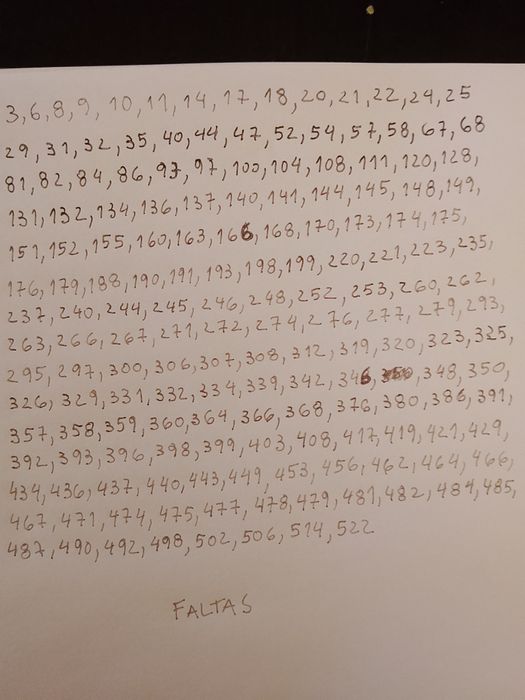 3, 6, 8, 9, 10, 11, 14, 17, 18, 20, 21, 22, 24, 25
29, 31, 32, 35, 40, 44, 47, 52, 54, 57, 58, 67, 68
81, 82, 84, 86, 93, 97, 100, 104, 108, 111, 120, 128,
131, 132, 134, 136, 137, 140, 141, 144, 145, 148, 149,
151, 152, 155, 160, 163, 166, 168, 170, 173, 174, 175,
176, 179, 188, 190, 191, 193, 198, 199, 220, 221, 223, 235,
237, 240, 244, 245, 246, 248, 252, 253, 260, 262,
263, 266, 267, 271, 272, 274, 276, 277, 279, 293,
295, 297, 300, 306, 307, 308, 312, 319, 320, 323, 325,
326, 329, 331, 332, 334, 339, 342, 346, 348, 350,
357, 358, 359, 360, 364, 366, 368, 376, 380, 386, 391,
392, 393, 396, 398, 399, 403, 408, 417, 419, 421, 429,
434, 436, 437, 440, 443, 449, 453, 456, 462, 464, 466,
467, 471, 474, 475, 477, 478, 479, 481, 482, 484, 485,
487, 490, 492, 498, 502, 506, 514, 522
FALTAS